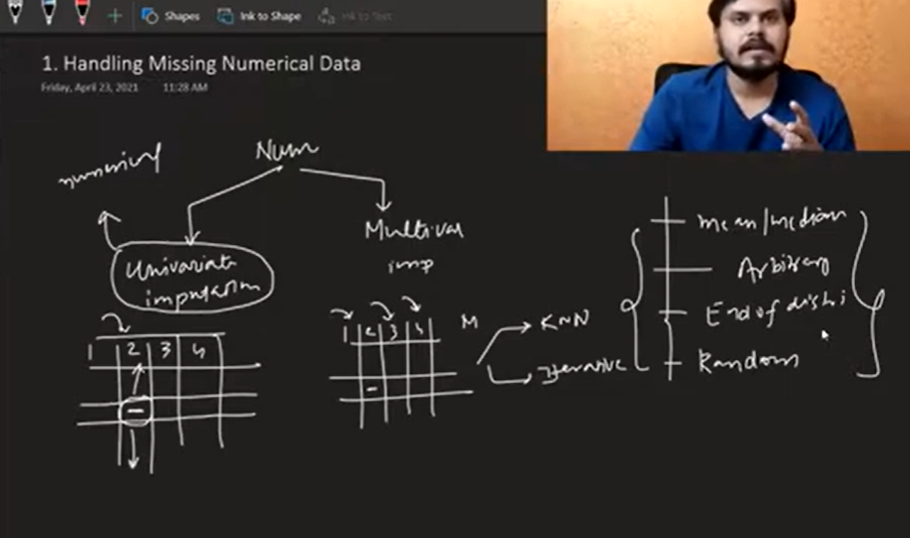 Shapes
Ink to Shape
Ink to Text
1. Handling Missing Numerical Data
Friday, April 23, 2021 11:28 AM
numerical
Num
Univariate
imputation
Multivar
imp
1 2 3 4
1 2 3 4
M
KNN
Iterative
mean/median
Arbitrary
End of distri
Random